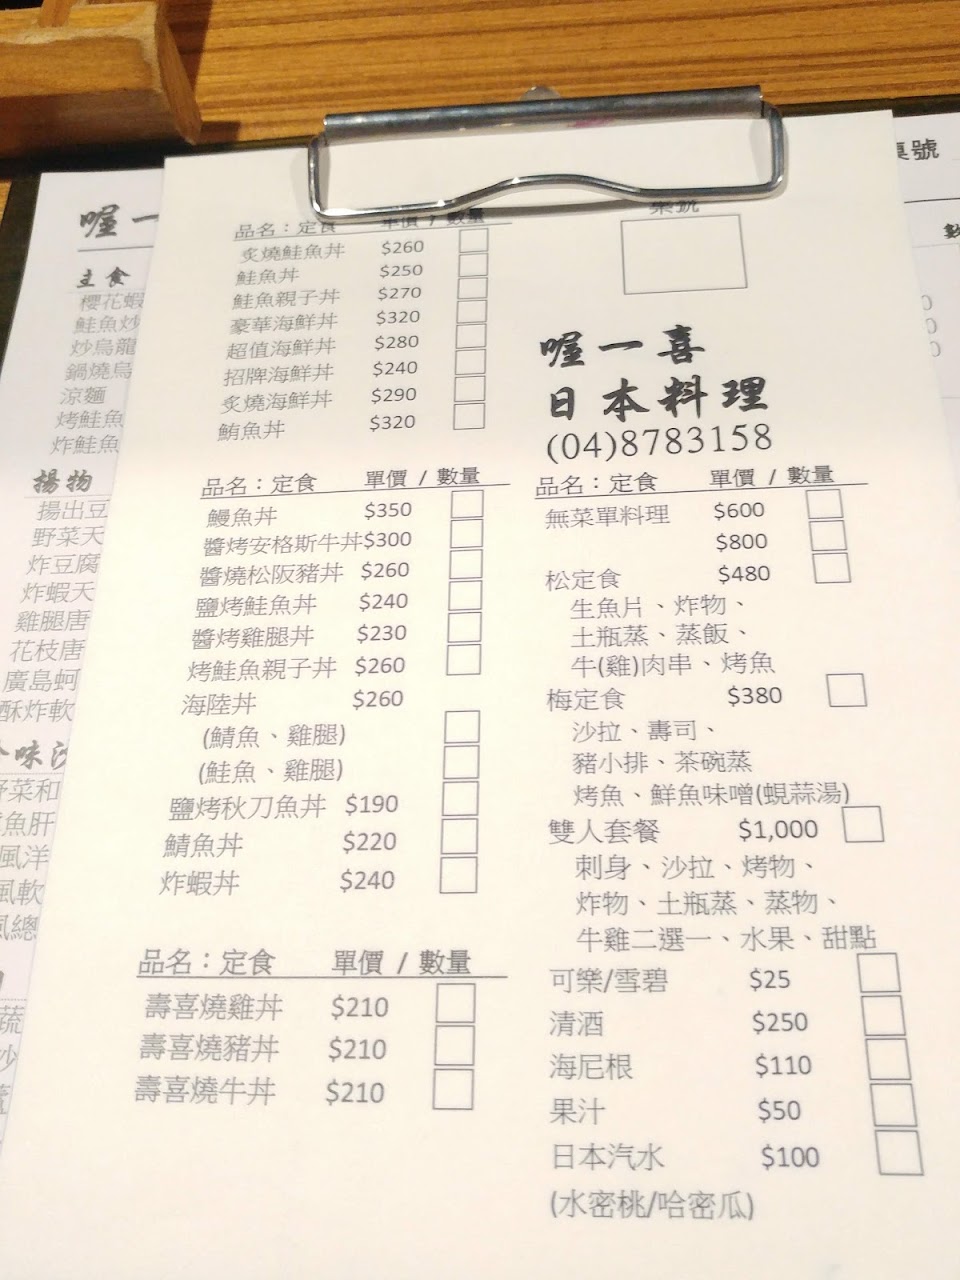 品名：定食 單價 / 數量
炙燒鮭魚丼 $260
鮭魚丼 $250
鮭魚親子丼 $270
豪華海鮮丼 $320
超值海鮮丼 $280
招牌海鮮丼 $240
炙燒海鮮丼 $290
鮪魚丼 $320
品名：定食 單價 / 數量
鰻魚丼 $350
醬烤安格斯牛丼$300
醬燒松阪豬丼 $260
鹽烤鮭魚丼 $240
醬烤雞腿丼 $230
烤鮭魚親子丼 $260
海陸丼 $260
(鯖魚、雞腿)
(鮭魚、雞腿)
鹽烤秋刀魚丼 $190
鯖魚丼 $220
炸蝦丼 $240
品名：定食 單價 / 數量
壽喜燒雞丼 $210
壽喜燒豬丼 $210
壽喜燒牛丼 $210
桌號
喔一喜
日本料理
(04)8783158
品名：定食 單價 / 數量
無菜單料理 $600
$800
松定食 $480
生魚片、炸物、
土瓶蒸、蒸飯、
牛(雞)肉串、烤魚
梅定食 $380
沙拉、壽司、
豬小排、茶碗蒸
烤魚、鮮魚味噌(蜆蒜湯)
雙人套餐 $1,000
刺身、沙拉、烤物、
炸物、土瓶蒸、蒸物、
牛雞二選一、水果、甜點
可樂/雪碧 $25
清酒 $250
海尼根 $110
果汁 $50
日本汽水 $100
(水密桃/哈密瓜)
喔一
主食
櫻花蝦
鮭魚炒
炒烏龍
鍋燒烏
涼麵
烤鮭魚
炸鮭魚
揚物
揚出豆
野菜天
炸豆腐
炸蝦天
雞腿唐
花枝唐
廣島蚵
酥炸軟
味沙
野菜和
魚肝
風洋
風軟
風總
蔬
炒
桌號
數